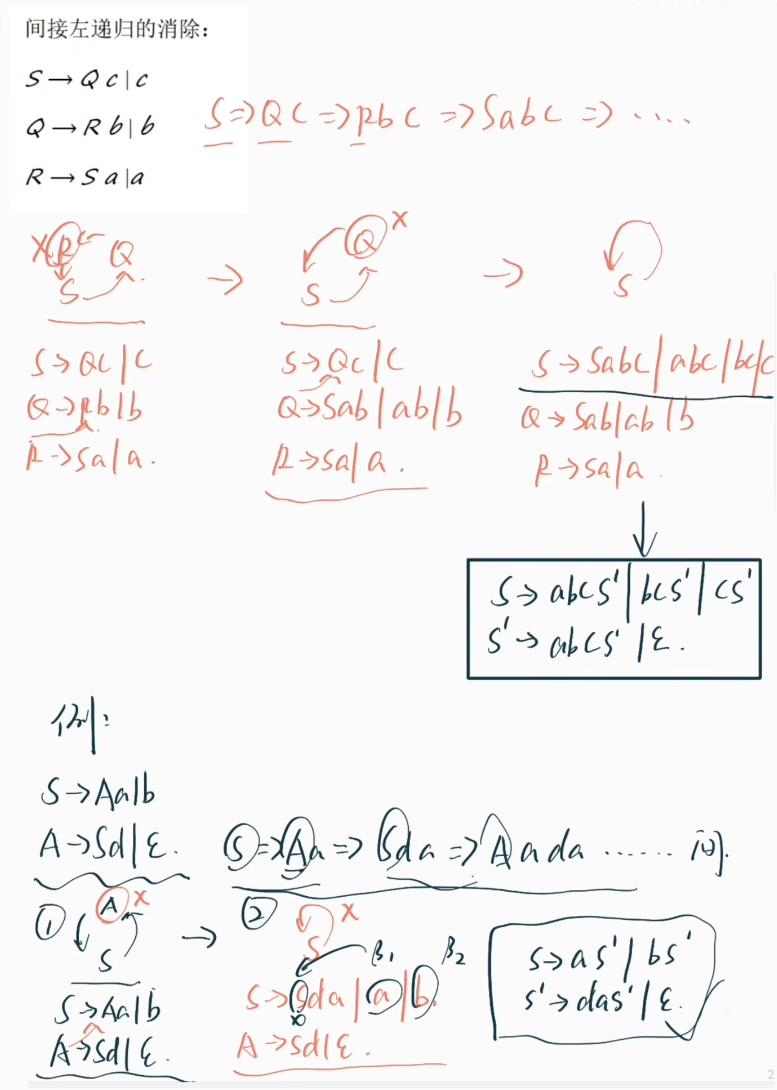 间接左递归的消除：
S → Q c | c
Q → R b | b
R → S a | a
S => Qc => Rbc => Sabc => ....
X R Q
S
Q X
S
S
S → Qc | c
Q → Rb | b
R → Sa | a.
S → Qc | c
Q → Sab | ab | b
R → Sa | a.
S → Sabc | abc | bc | c
Q → Sab | ab | b
R → Sa | a
S → abcS' | bcS' | cS'
S' → abcS' | ε.
例:
S → Aa | b
A → Sd | ε.
S => Aa => Sda => Aada ...... 间.
① A X
S
S → Aa | b
A → Sd | ε.
② X
S
β₁ β₂
S → Sda | a | b.
A → Sd | ε.
S → aS' | bS'
S' → daS' | ε.
2